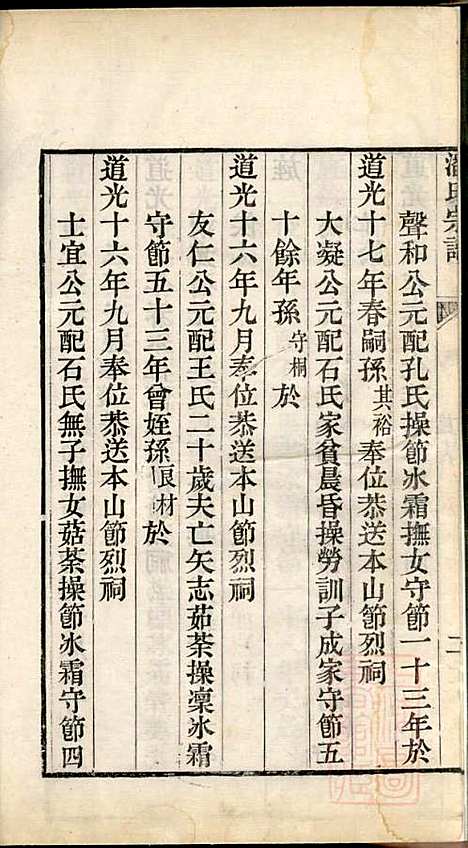 潘氏宗譜
二
聲和公元配孔氏操節冰霜撫女守節一十三年於
道光十七年春嗣孫其裕奉位恭送本山節烈祠
大凝公元配石氏家貧晨昏操勞訓子成家守節五
十餘年孫守桐於
道光十六年九月奉位恭送本山節烈祠
友仁公元配王氏二十歲夫亡矢志茹荼操凜冰霜
守節五十三年會姪孫良材於
道光十六年九月奉位恭送本山節烈祠
士宜公元配石氏無子撫女茹荼操節冰霜守節四